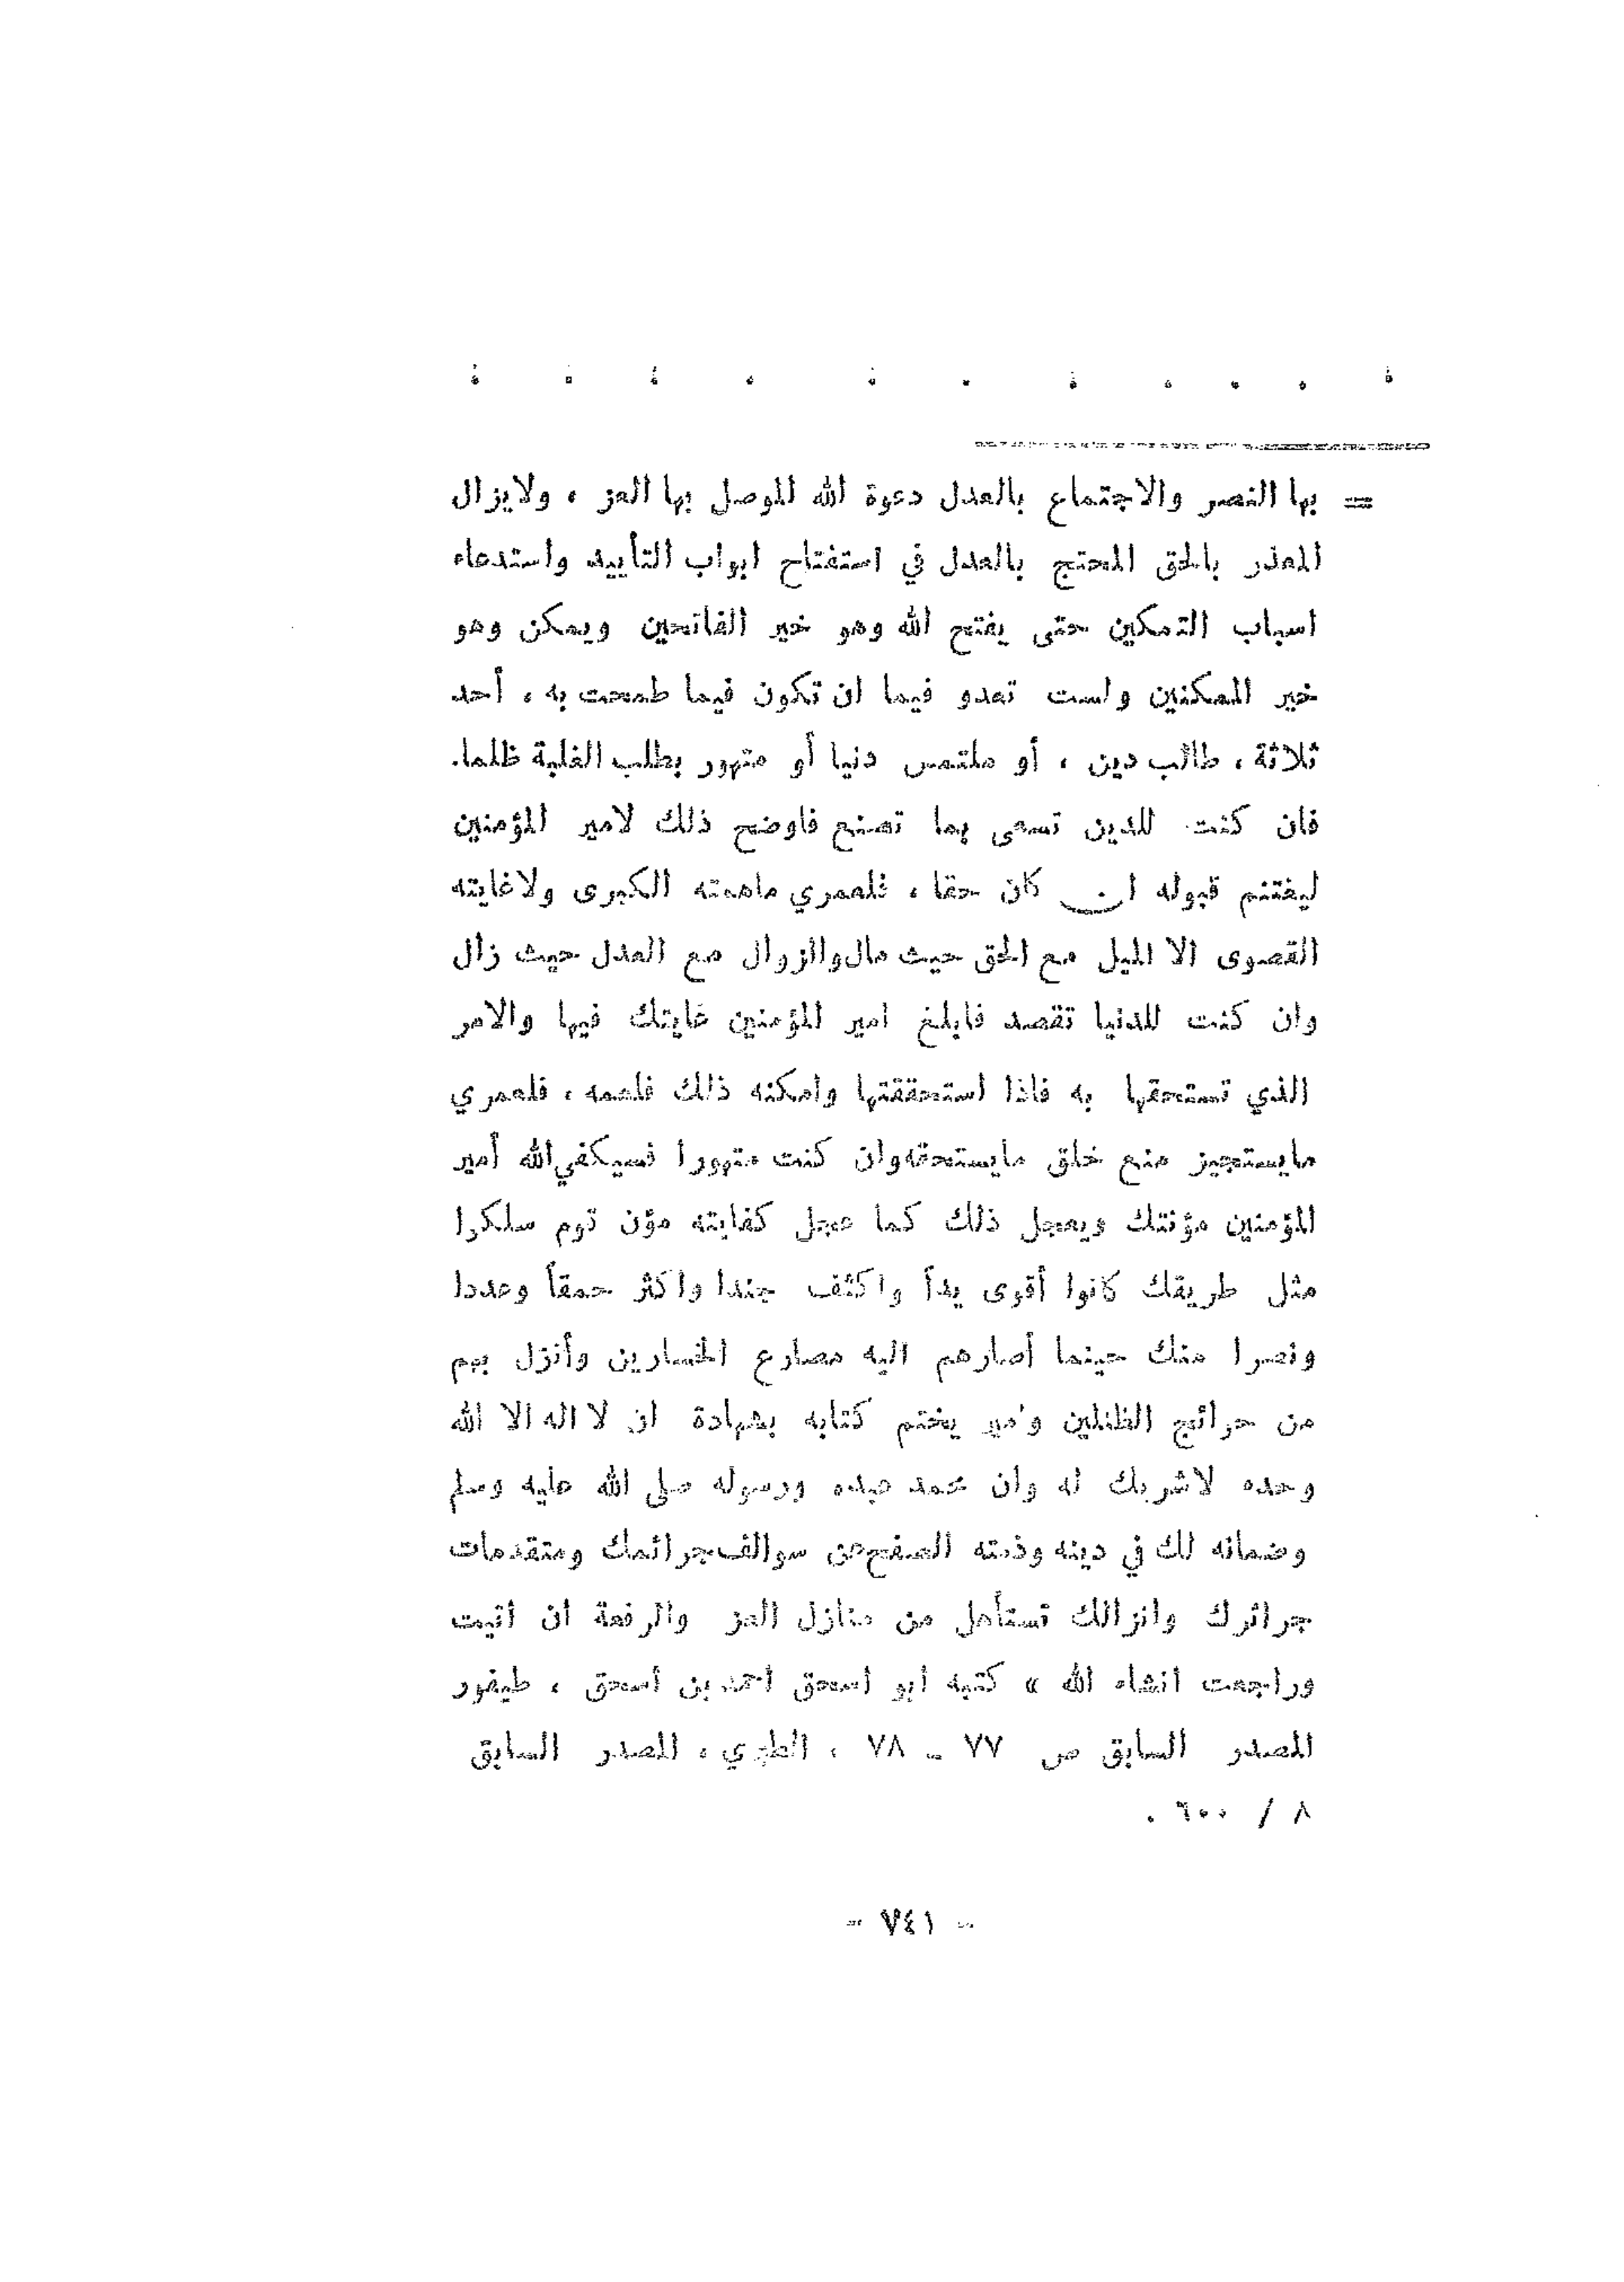 = بها النصر والاجتماع بالعدل دعوة الله الموصل بها العز ، ولايزال
المعذر بالحق المحتج بالعدل في استفتاح ابواب التأييد واستدعاء
اسباب التمكين حتى يفتح الله وهو خير الفاتحين ويمكن وهو
خير الممكنين ولست تعدو فيما ان تكون فيما طمحت به ، أحد
ثلاثة ، طالب دين ، أو ملتمس دنيا أو متهور بطلب الغلبة ظلما.
فان كنت للدين تسعى بما تصنع فاوضح ذلك لامير المؤمنين
ليغتنم قبوله ان كان حقا ، فلعمري ماهمته الكبرى ولاغايته
القصوى الا الميل مع الحق حيث مال والزوال مع العدل حيث زال
وان كنت للدنيا تقصد فابلغ امير المؤمنين غايتك فيها والامر
الذي تستحقها به فاذا استحققتها وامكنه ذلك فلعمه ، فلعمري
مايستجيز منع خلق مايستحقه وان كنت متهورا فسيكفي الله أمير
المؤمنين مؤنتك ويعجل ذلك كما عجل كفايته مؤن قوم سلكوا
مثل طريقك كانوا أقوى يدأ واكثف جندا واكثر حمقاً وعددا
ونصرا منك حينما أصارهم اليه مصارع الخسارين وأنزل بهم
من حرائج الظالمين وامير يختم كتابه بشهادة ان لا اله الا الله
وحده لاشريك له وان محمد عبده ورسوله صلى الله عليه وسلم
وضمانه لك في دينه وذمته الصفح عن سوالف جرائمك ومتقدمات
جرائرك وانزالك تستأهل من منازل العز والرفعة ان اتيت
وراجعت انشاء الله » كتبه ابو اسحق احمد بن اسحق ، طيفور
المصدر السابق ص ٧٧ - ٧٨ ، الطبري ، المصدر السابق
٨ / ٦٠٠ .
- ٧٤١ -